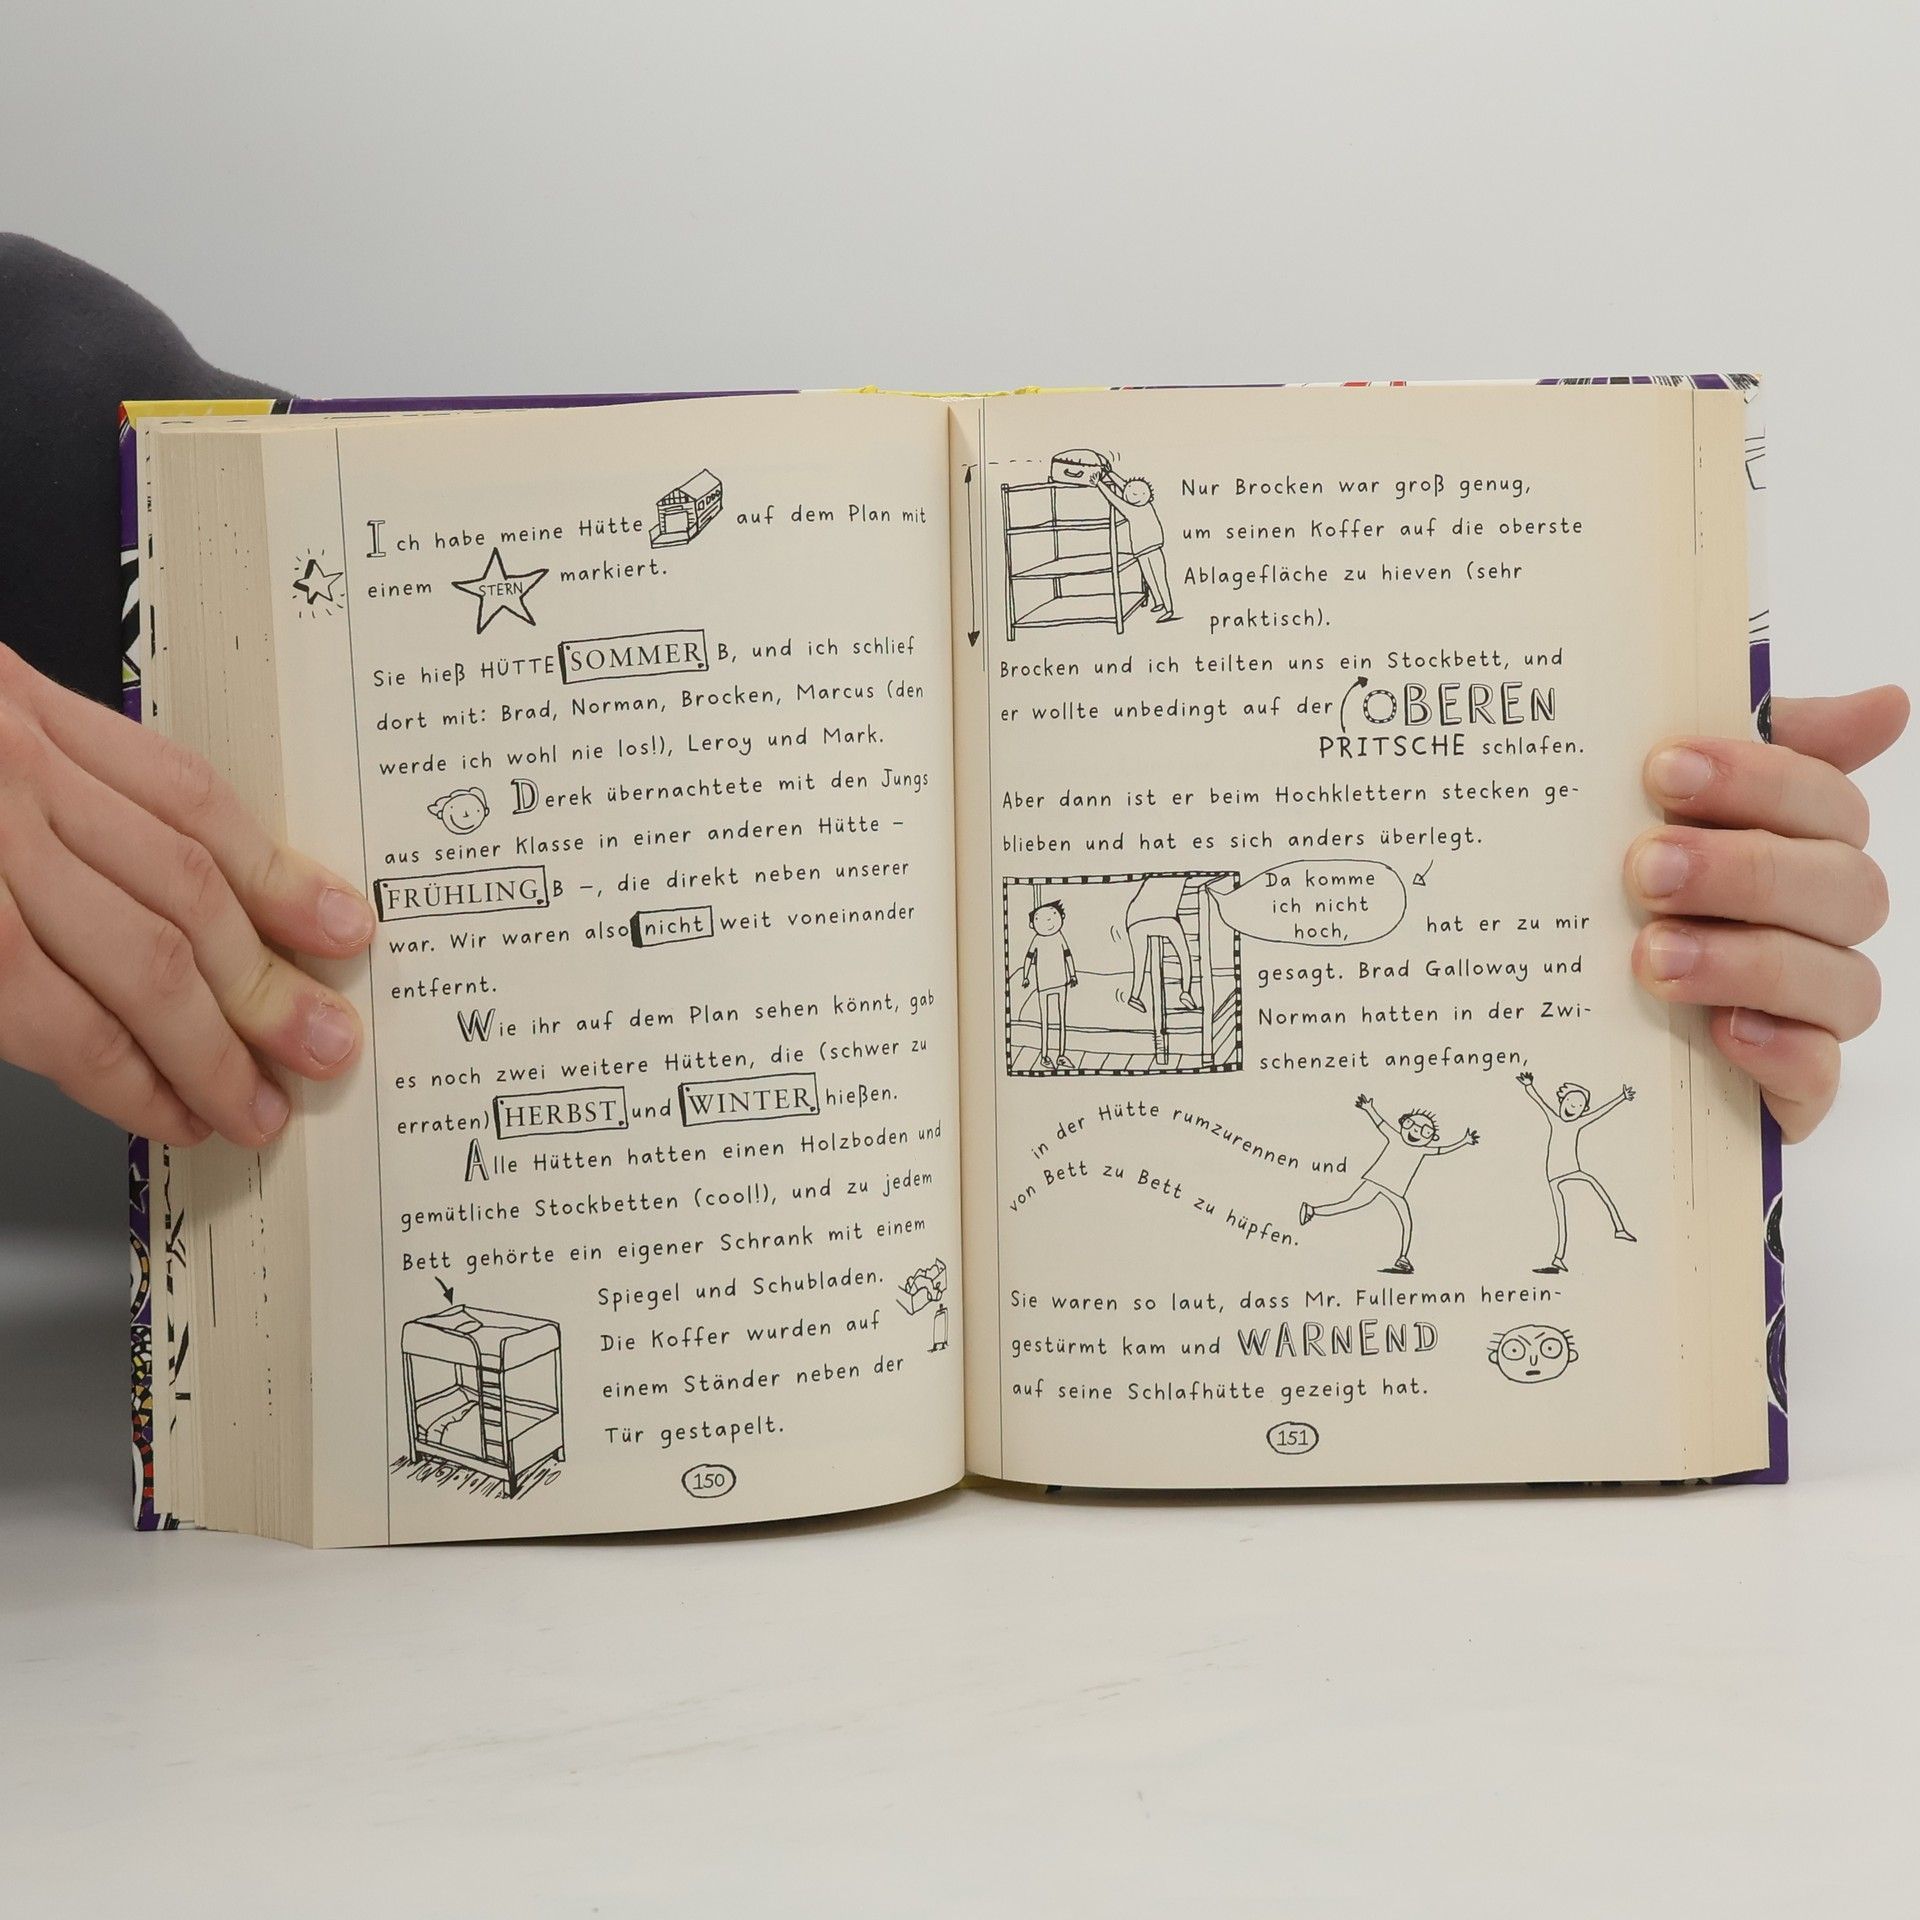 Ich habe meine Hütte auf dem Plan mit
einem STERN markiert.
Sie hieß HÜTTE SOMMER B, und ich schlief
dort mit: Brad, Norman, Brocken, Marcus (den
werde ich wohl nie los!), Leroy und Mark.
Derek übernachtete mit den Jungs
aus seiner Klasse in einer anderen Hütte –
FRÜHLING B –, die direkt neben unserer
war. Wir waren also nicht weit voneinander
entfernt.
Wie ihr auf dem Plan sehen könnt, gab
es noch zwei weitere Hütten, die (schwer zu
erraten) HERBST und WINTER hießen.
Alle Hütten hatten einen Holzboden und
gemütliche Stockbetten (cool!), und zu jedem
Bett gehörte ein eigener Schrank mit einem
Spiegel und Schubladen.
Die Koffer wurden auf
einem Ständer neben der
Tür gestapelt.
150
Nur Brocken war groß genug,
um seinen Koffer auf die oberste
Ablagefläche zu hieven (sehr
praktisch).
Brocken und ich teilten uns ein Stockbett, und
er wollte unbedingt auf der OBEREN
PRITSCHE schlafen.
Aber dann ist er beim Hochklettern stecken ge-
blieben und hat es sich anders überlegt.
Da komme
ich nicht
hoch,
hat er zu mir
gesagt. Brad Galloway und
Norman hatten in der Zwi-
schenzeit angefangen,
in der Hütte rumzurennen und
von Bett zu Bett zu hüpfen.
Sie waren so laut, dass Mr. Fullerman herein-
gestürmt kam und WARNEND
auf seine Schlafhütte gezeigt hat.
151